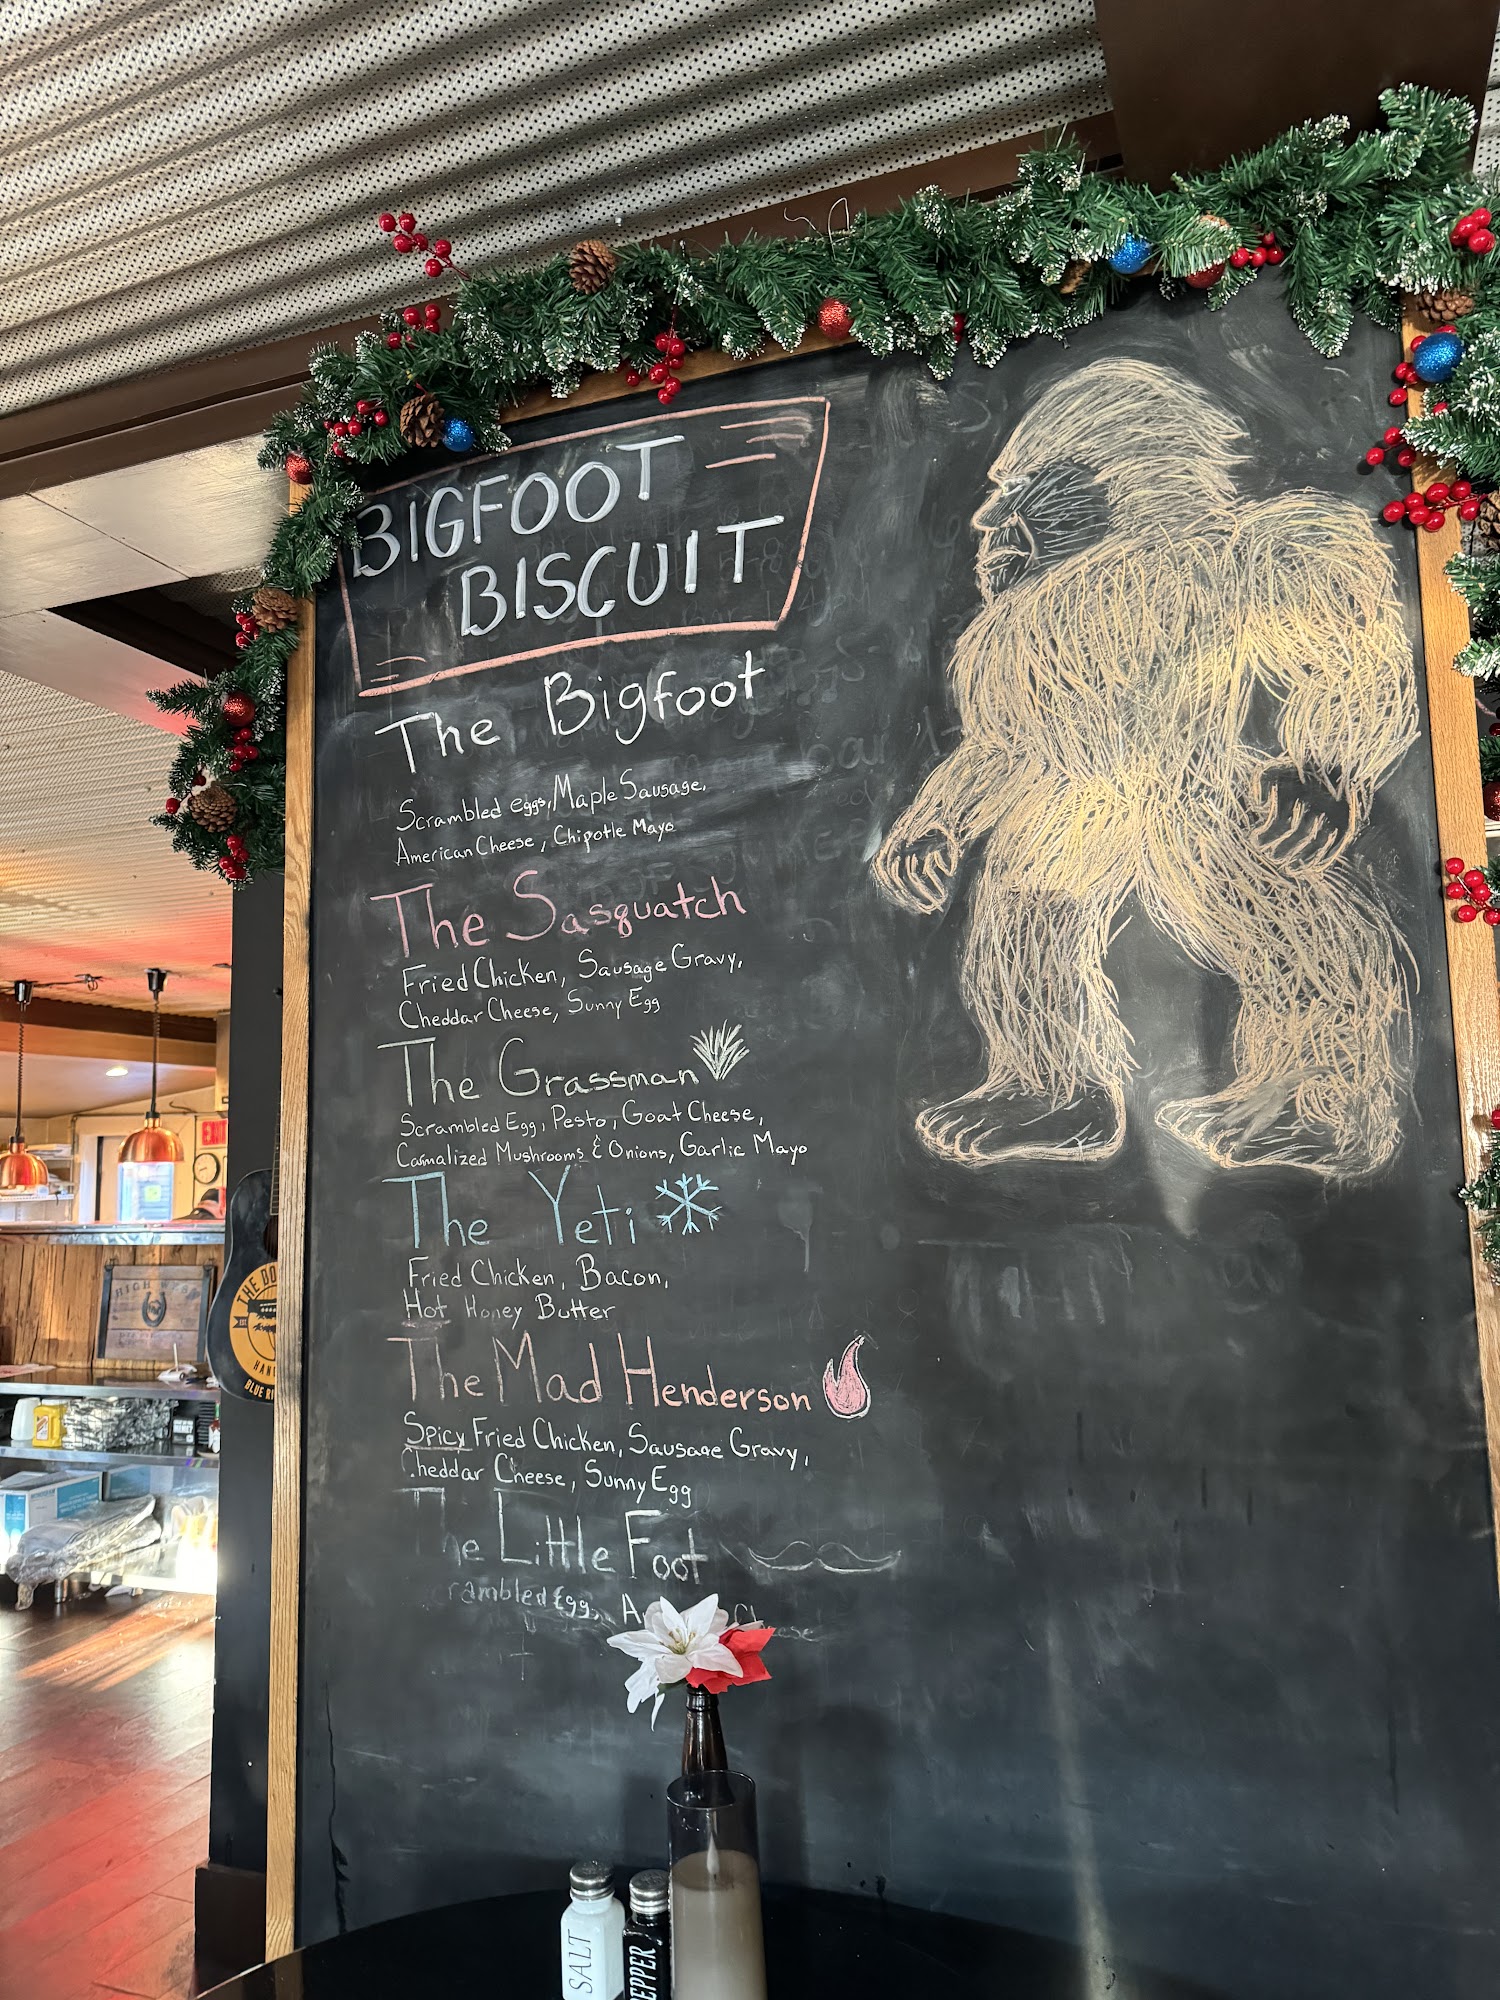 BIGFOOT
BISCUIT
The Bigfoot
Scrambled eggs, Maple Sausage,
American Cheese, Chipotle Mayo
The Sasquatch
Fried Chicken, Sausage Gravy,
Cheddar Cheese, Sunny Egg
The Grassman
Scrambled Egg, Pesto, Goat Cheese,
Carmalized Mushrooms & Onions, Garlic Mayo
The Yeti
Fried Chicken, Bacon,
Hot Honey Butter
The Mad Henderson
Spicy Fried Chicken, Sausage Gravy,
Cheddar Cheese, Sunny Egg
The Little Foot
Egg,
THE
HAN
BLUE
HIGH WEST
SALT
PEPPER